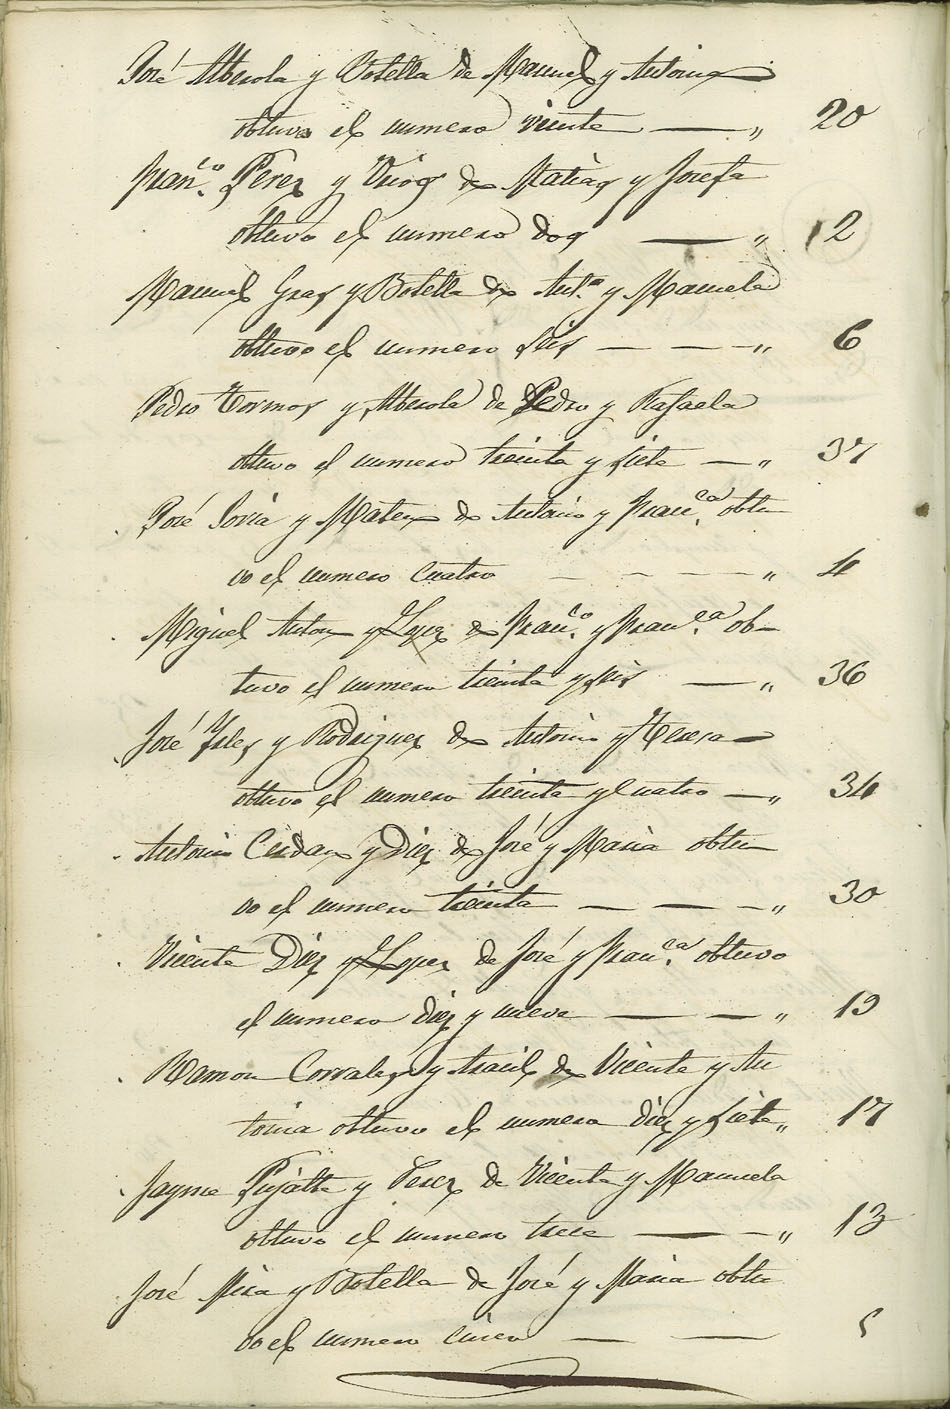 José Alberola y Botella de Manuel y Antonia
obtuvo el numero veinte — „ 20
Fran.co Perez y de Matias y Josefa
obtuvo el numero dos — „ 2
Manuel Gras y Botella de Ant.o y Manuela
obtuvo el numero seis — — — „ 6
Pedro Tormos y Alberola de Pedro y Rafaela
obtuvo el numero treinta y siete — „ 37
José Soria y Mateo de Antonio y Fran.ca obtu
vo el numero cuatro — — — — „ 4
Miguel Anton y Lopez de Fran.co y Fran.ca ob-
tuvo el numero treinta y seis — „ 36
José Yrles y Rodriguez de Antonio y Teresa
obtuvo el numero treinta y cuatro — „ 34
Antonio Cerdan y Diez de José y Maria obtu
vo el numero treinta — — — „ 30
Vicente Diez y Lopez de José y Fran.ca obtuvo
el numero diez y nueve — — „ 19
Ramon Corrales y de Vicente y An
tonia obtuvo el numero diez y siete „ 17
Jayme Pujalte y Perez de Vicente y Manuela
obtuvo el numero trece — — „ 13
José Mira y Botella de José y Maria obtu
vo el numero cinco — — 5